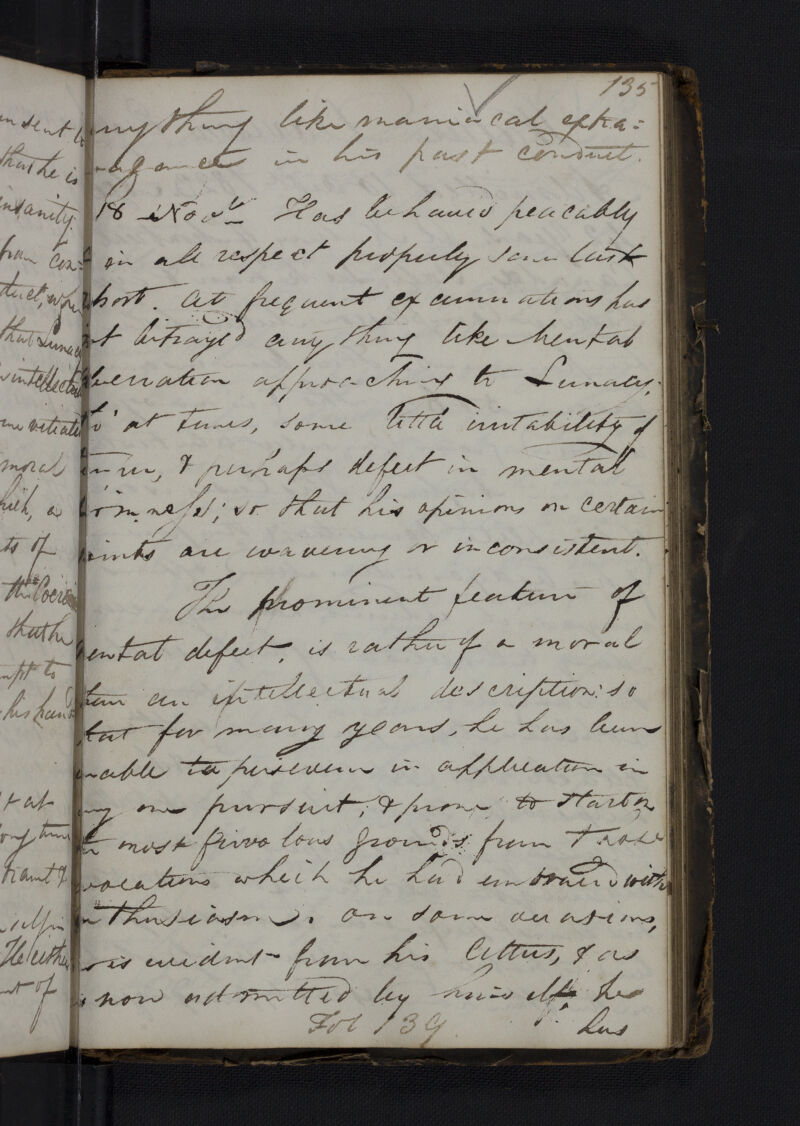 135
anything like maniacal extra=
vagances in his past conduct.
18 Novr. Has behaved peacably
& in all respect properly since last
report. At frequent examinations has
not betrayed any thing like Mental
aberration approaching to Lunacy;
tho' at times, some little irritability of
, & perhaps defect in mental
firmness; so that his opinions on certain
points are wavering or inconsistent.
The prominent feature of
mental defect, is rather of a moral
than an intellectual description: so
that for many years, he has been
unable to persevere in application in
any one pursuit, & prone to start on
the most frivolous grounds from those
avocations which he had embraced with
enthusiasm. On some occasions,
as is evident from his letters, & as
is now admitted by himself, he
Fol 139 has